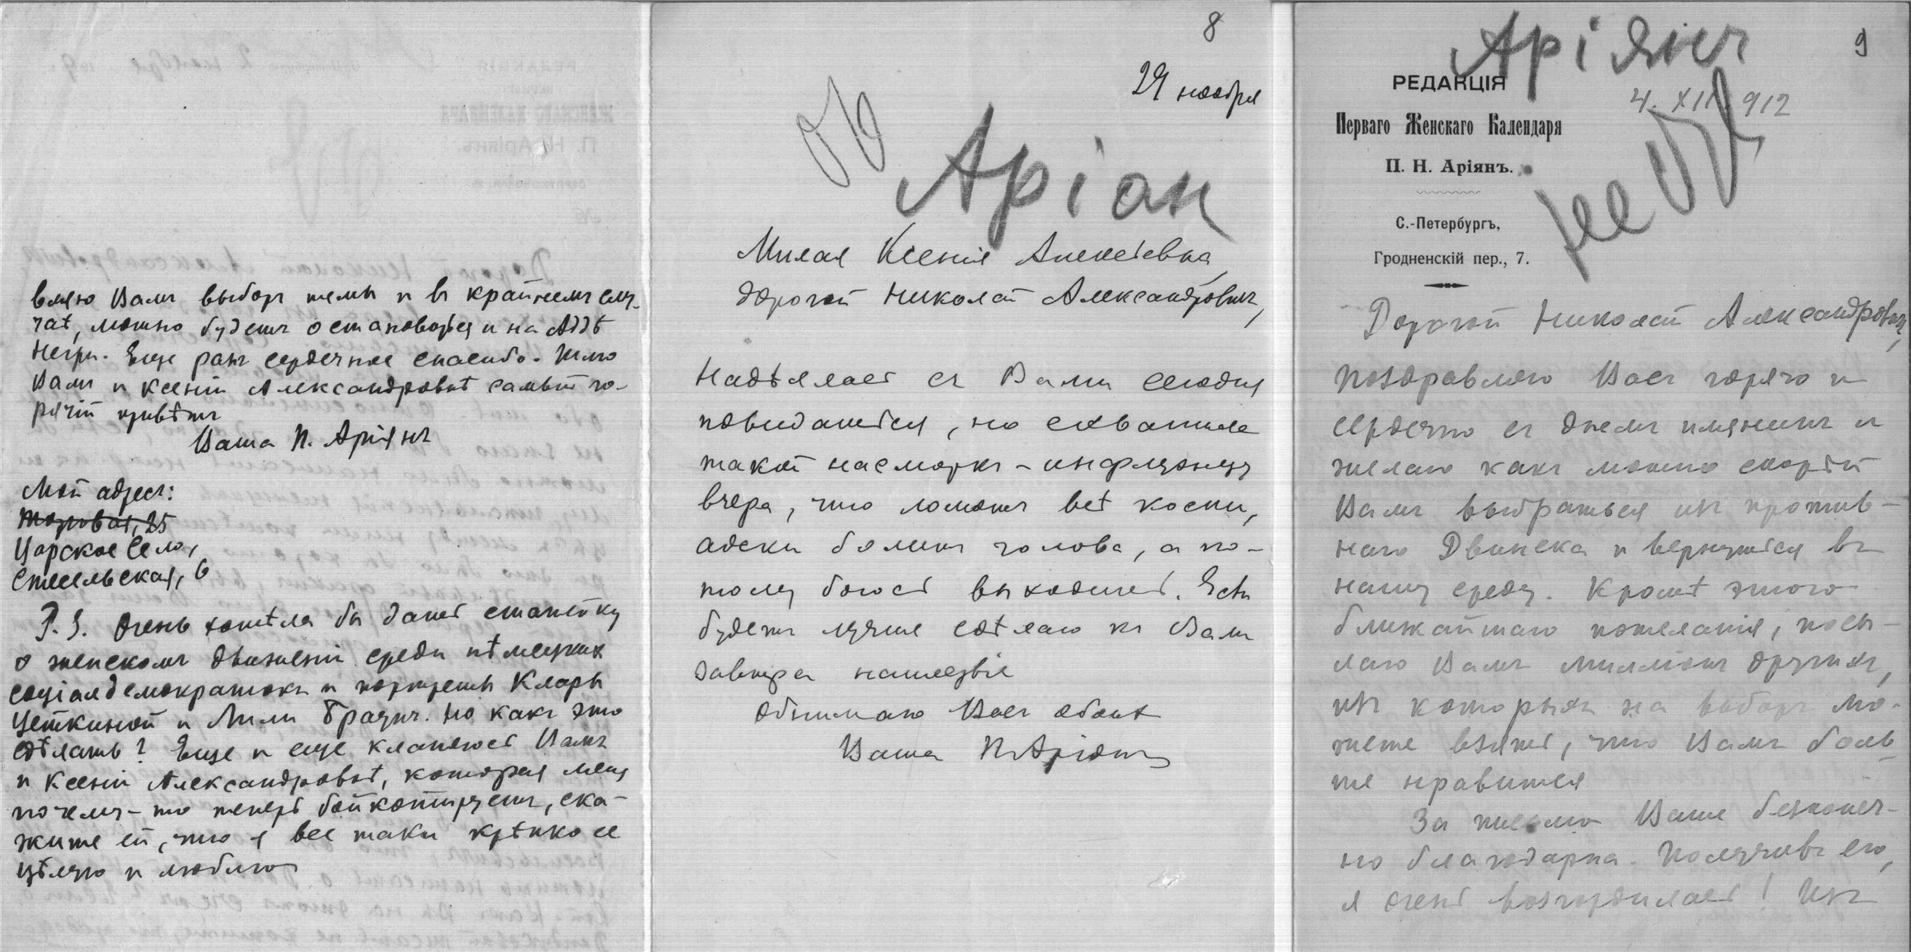 вляю Вамъ выборъ темы и въ крайнемъ слу-
чаѣ, можно будетъ остановиться и на Адѣ
Негри. Еще разъ сердечное спасибо. Шлю
Вамъ и Ксеніи Александровнѣ самый го-
рячій привѣтъ
Ваша П. Аріянъ
Мой адресъ:
25
Царское Село,
6
P.S. Очень хотѣла бы дать статейку
о женскомъ движеніи среди нѣмецкихъ
соціалдемократокъ и портреты Клары
Цеткиной и Лили Браунъ. Но какъ это
сдѣлать? Еще и еще кланяюсь Вамъ
и Ксеніи Александровнѣ, которая меня
почему-то теперь бойкотируетъ, ска-
жите ей, что я все таки крѣпко ее
цѣлую и люблю
8
29 ноября
Аріан
Милая Ксенія Алексѣевна,
дорогой Николай Александровичъ,
Надѣялась съ Вами сегодня
повидаться, но схватила
такой насморкъ-инфлуэнцу
вчера, что ломятъ всѣ кости,
адски болитъ голова, а по-
тому боюсь выходить. Если
будетъ лучше сдѣлаю къ Вамъ
завтра нашествіе
Обнимаю Васъ обоихъ
Ваша П. Аріянъ
9
Аріянъ
РЕДАКЦІЯ
4. XII. 912
Перваго Женскаго Календаря
П. Н. Аріянъ.
С.-Петербургъ,
Гродненскій пер., 7.
Дорогой Николай Александровичъ,
Поздравляю Васъ горячо и
сердечно съ днемъ имянинъ и
желаю какъ можно скорѣй
Вамъ выбраться изъ против-
наго Двинска и вернуться въ
нашу среду. Кромѣ этого
ближайшаго пожеланія, посы-
лаю Вамъ милліонъ другихъ,
изъ которыхъ на выборъ мо-
жете взять, что Вамъ боль-
ше нравится
За письмо Ваше безконеч-
но благодарна. Получивъ его,
я очень возгордилась! Изъ